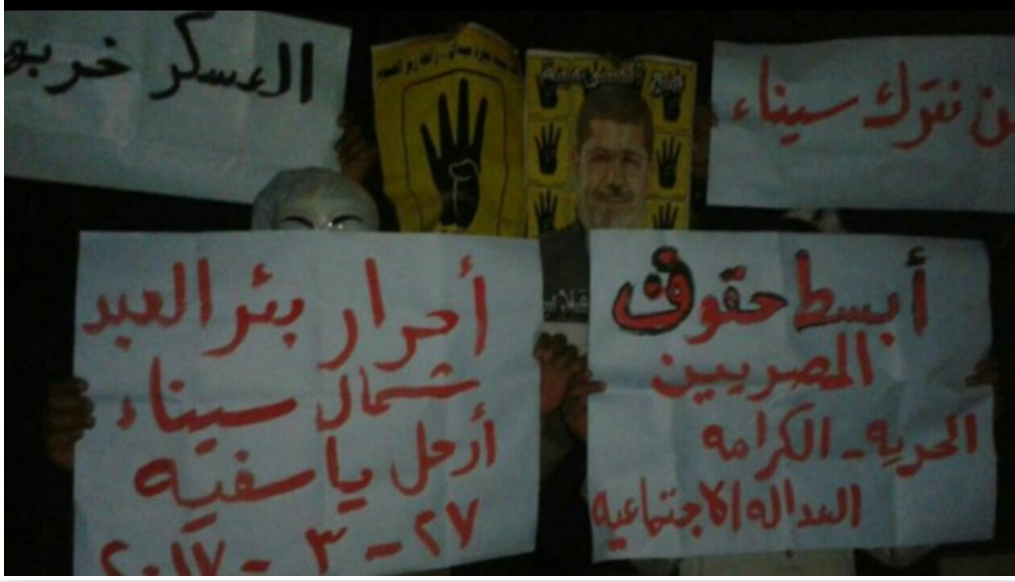 العسكر خربو
مع الشرعية
لن نترك سيناء
أحرار بئر العبد
شمال سيناء
أرحل يا سفيه
٢٧ - ٣ - ٢٠١٧
أبسط حقوق
المصريين
الحريه - الكرامه
العداله الاجتماعيه